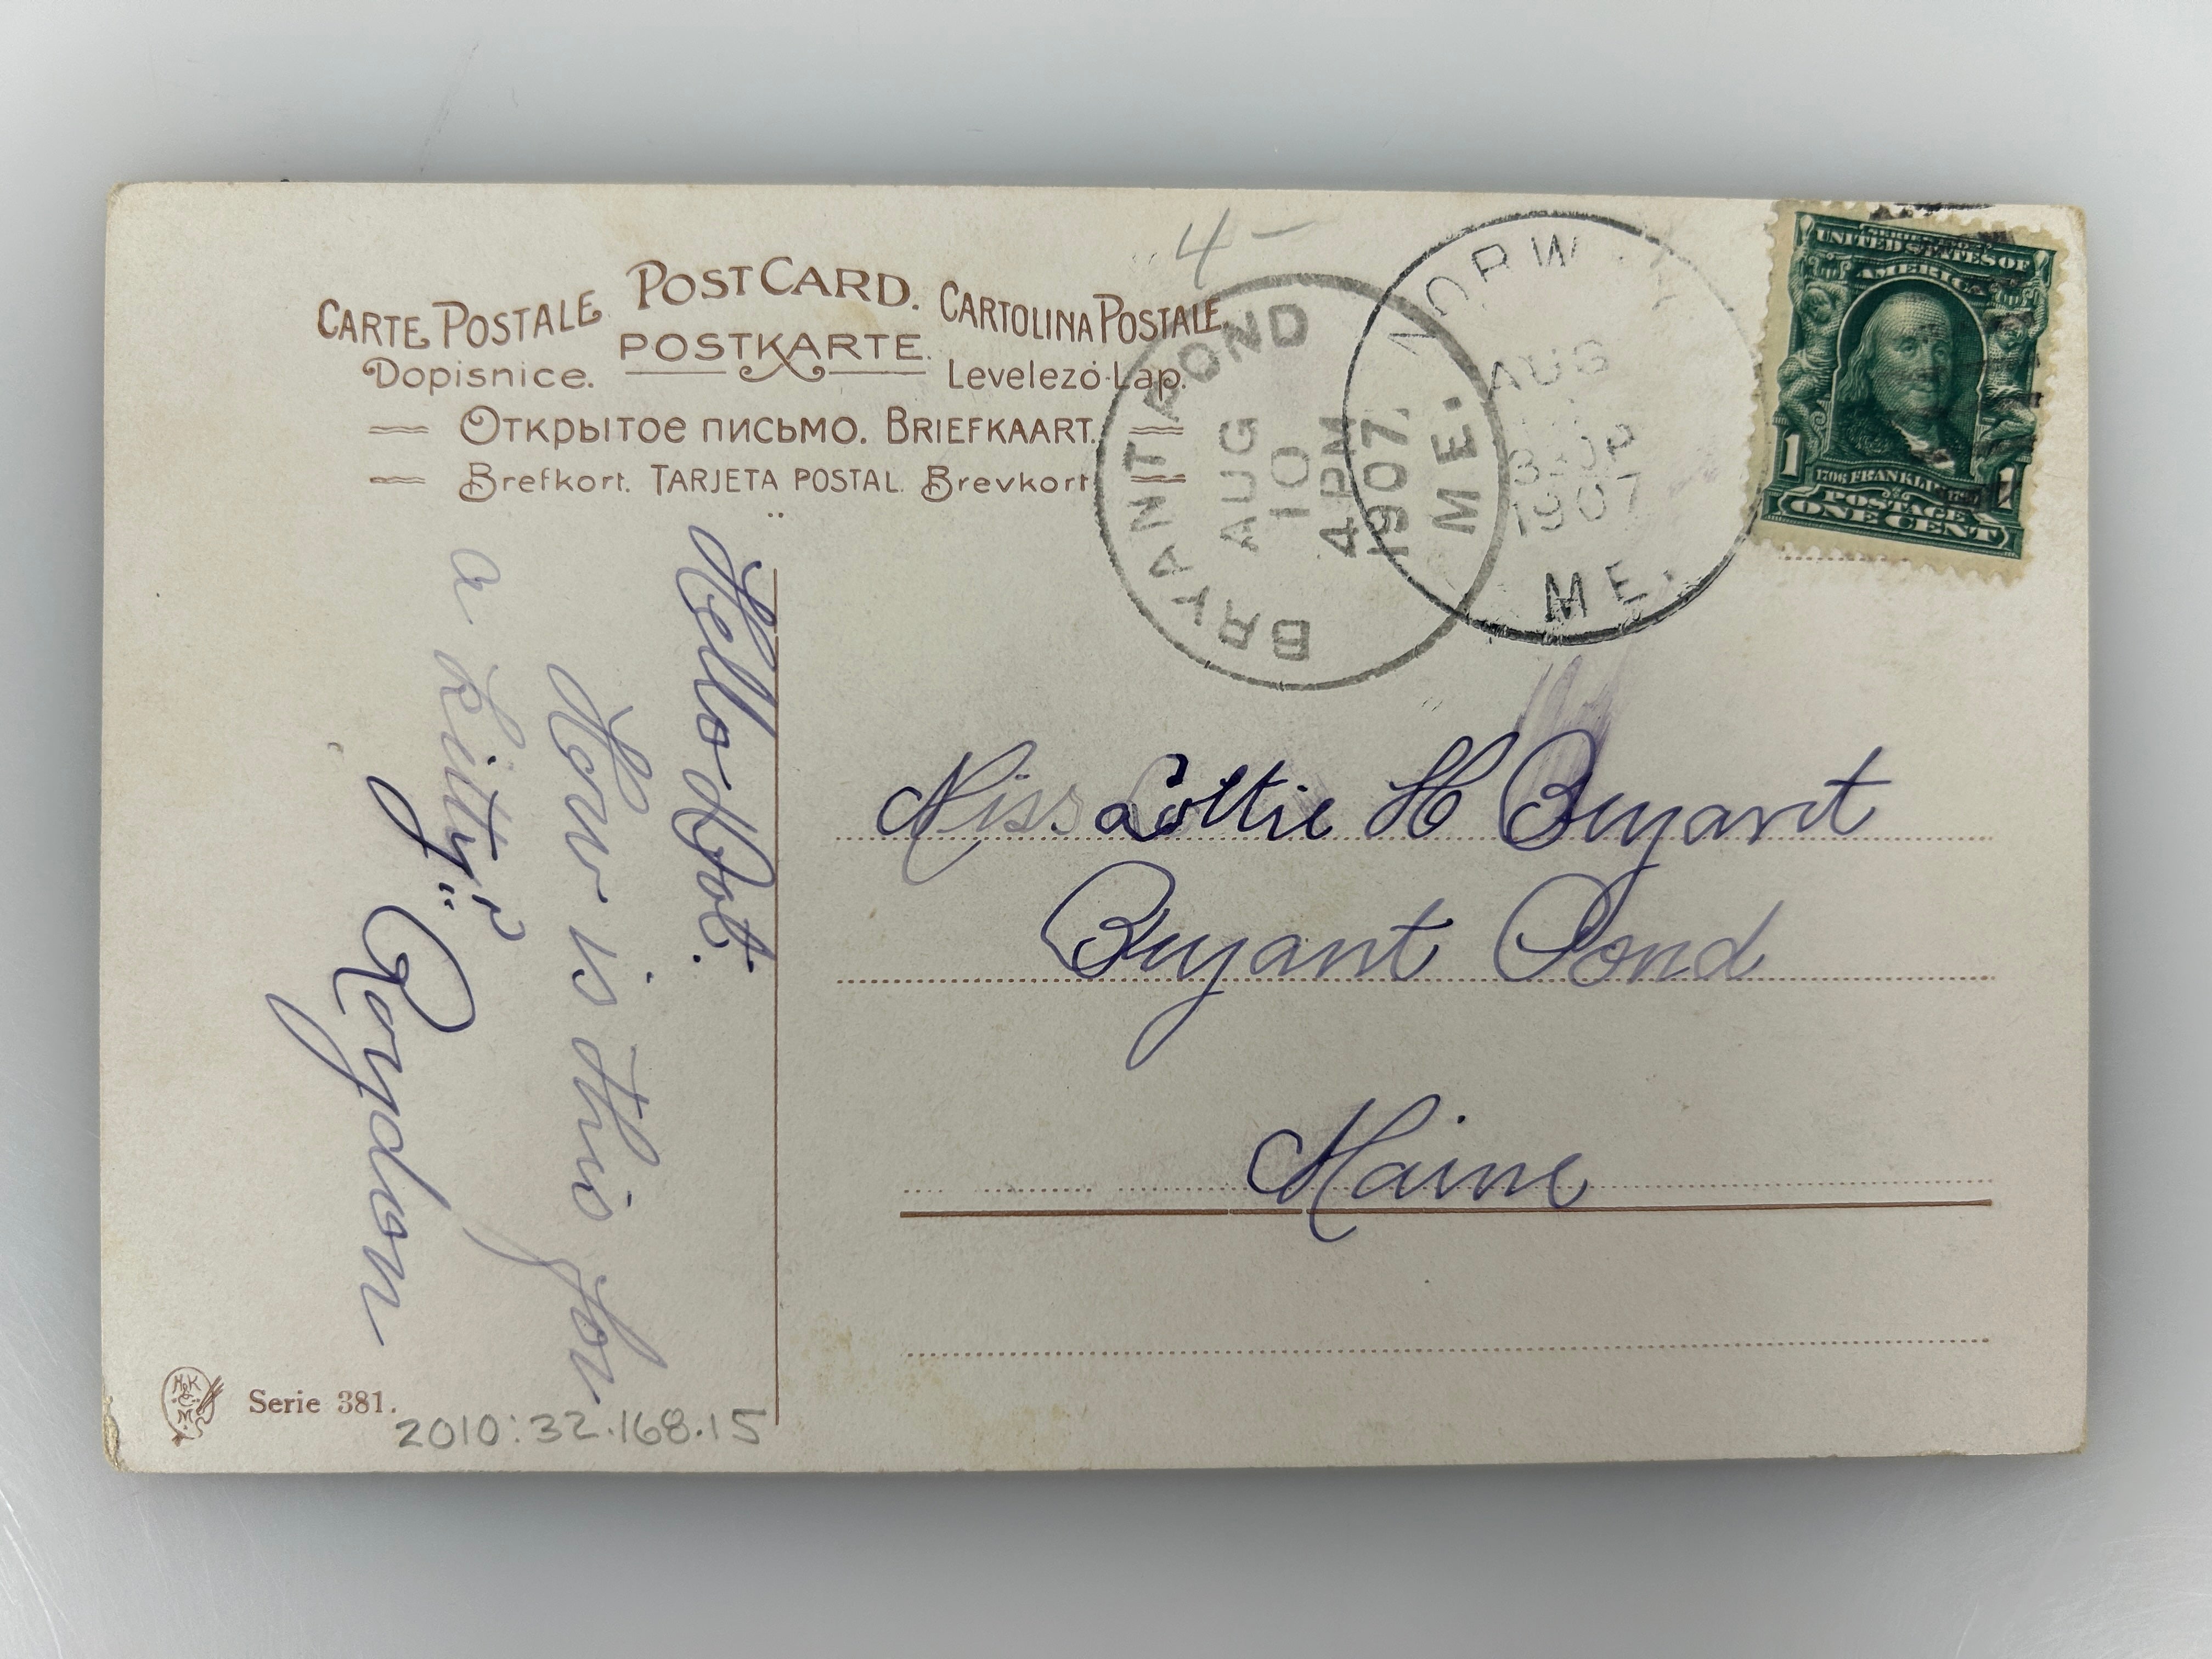 4 —
POST CARD.
CARTE POSTALE
CARTOLINA POSTALE
POSTKARTE.
Dopisnice.
Levelezö-Lap.
Открытое письмо. BRIEFKAART.
Brefkort. TARJETA POSTAL. Brevkort
BRYANT POND ME.
AUG
10
4 PM
1907.
NORWAY
AUG
1907
ME.
SERIES 1902
UNITED STATES OF
AMERICA
1706 FRANKLIN 1790
1 1
POSTAGE
ONE CENT
Hello Dot.
How is this for
a kitty?
"Roydon
Miss Lottie H Bryant
Bryant Pond
Maine
M&K
Serie 381.
2010:32.168.15